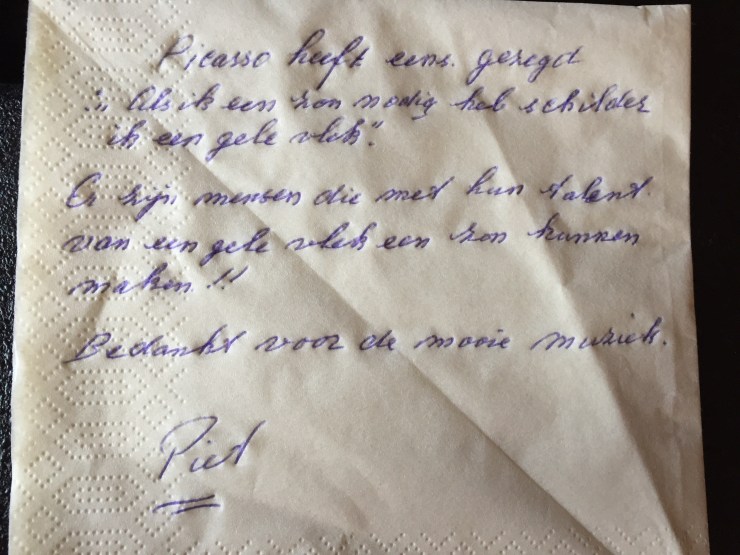 Picasso heeft eens. gezegd
:„ Als ik een zon nodig heb schilder
ik een gele vlek".
Er zijn mensen die met hun talent
van een gele vlek een zon kunnen
maken !!
Bedankt voor de mooie muziek.
Piet